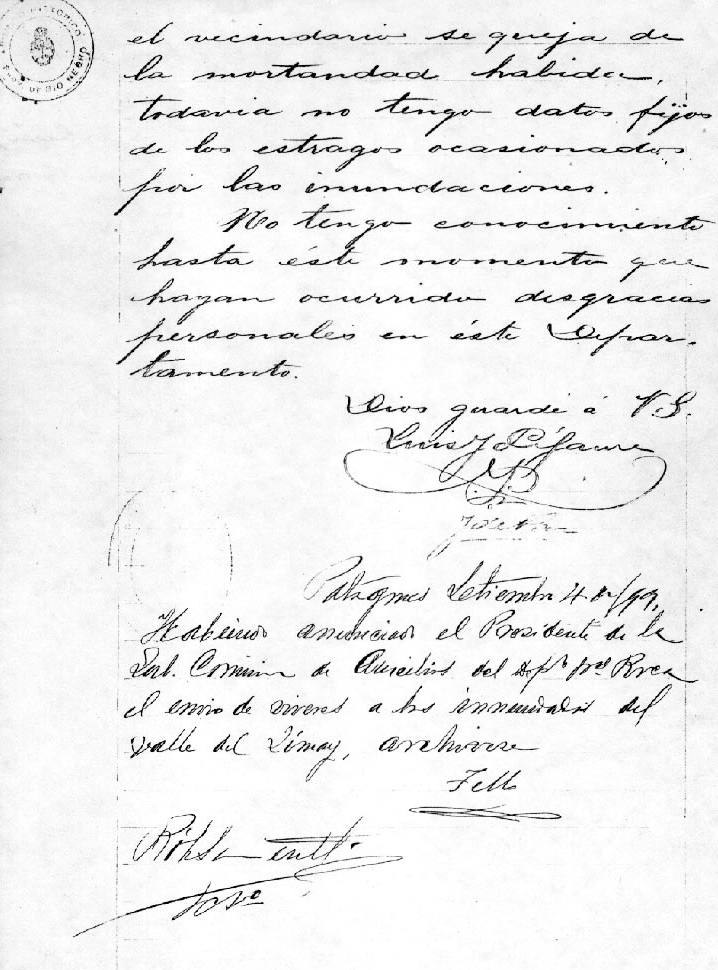 el vecindario se queja de
la mortandad habida,
todavia no tengo datos fijos
de los estragos ocasionados
por las inundaciones.
No tengo conocimiento
hasta éste momento que
hayan ocurrido disgracias
personales en éste Depar-
tamento.
Dios guarde á V.S.
Luis J.
Patagones Setiembre 4 de/99,
Habiendo anunciado el Presidente de la
Sub. Comision de Auxilios del Roca
el envio de viveres a los innundados del
valle del Limay, archivese
Tello